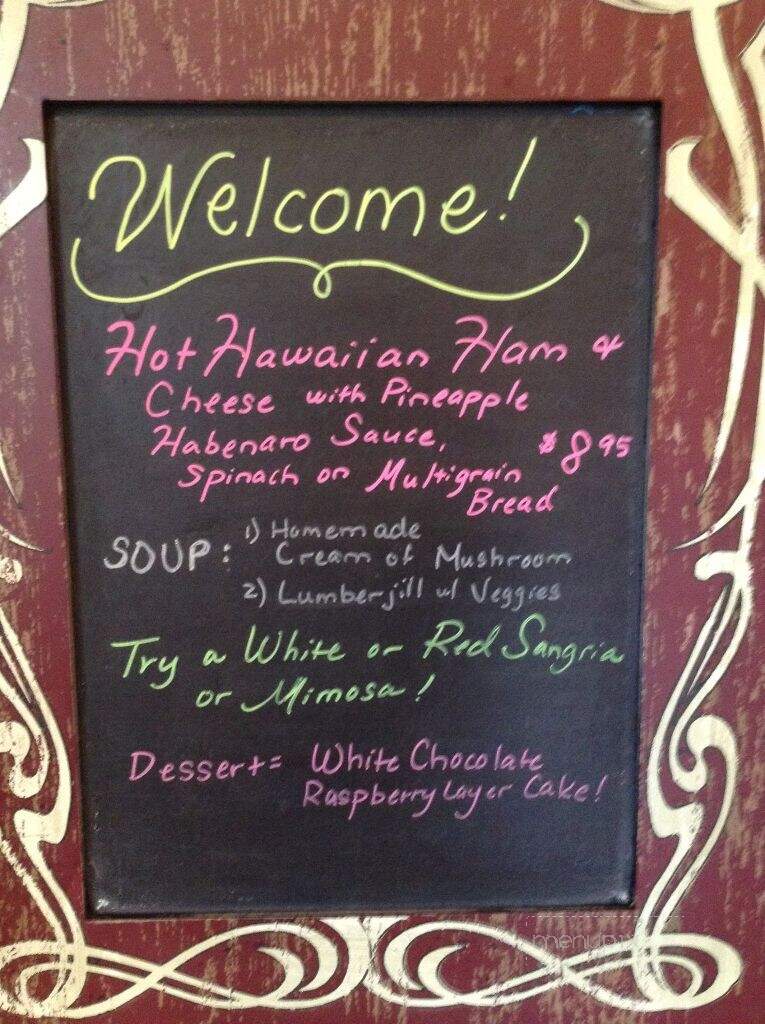 Welcome!
Hot Hawaiian Ham &
Cheese with Pineapple
Habenaro Sauce, $8.95
Spinach on Multigrain
Bread
SOUP: 1) Homemade
Cream of Mushroom
2) Lumberjill w/ Veggies
Try a White or Red Sangria
or Mimosa!
Dessert= White Chocolate
Raspberry Layer Cake!